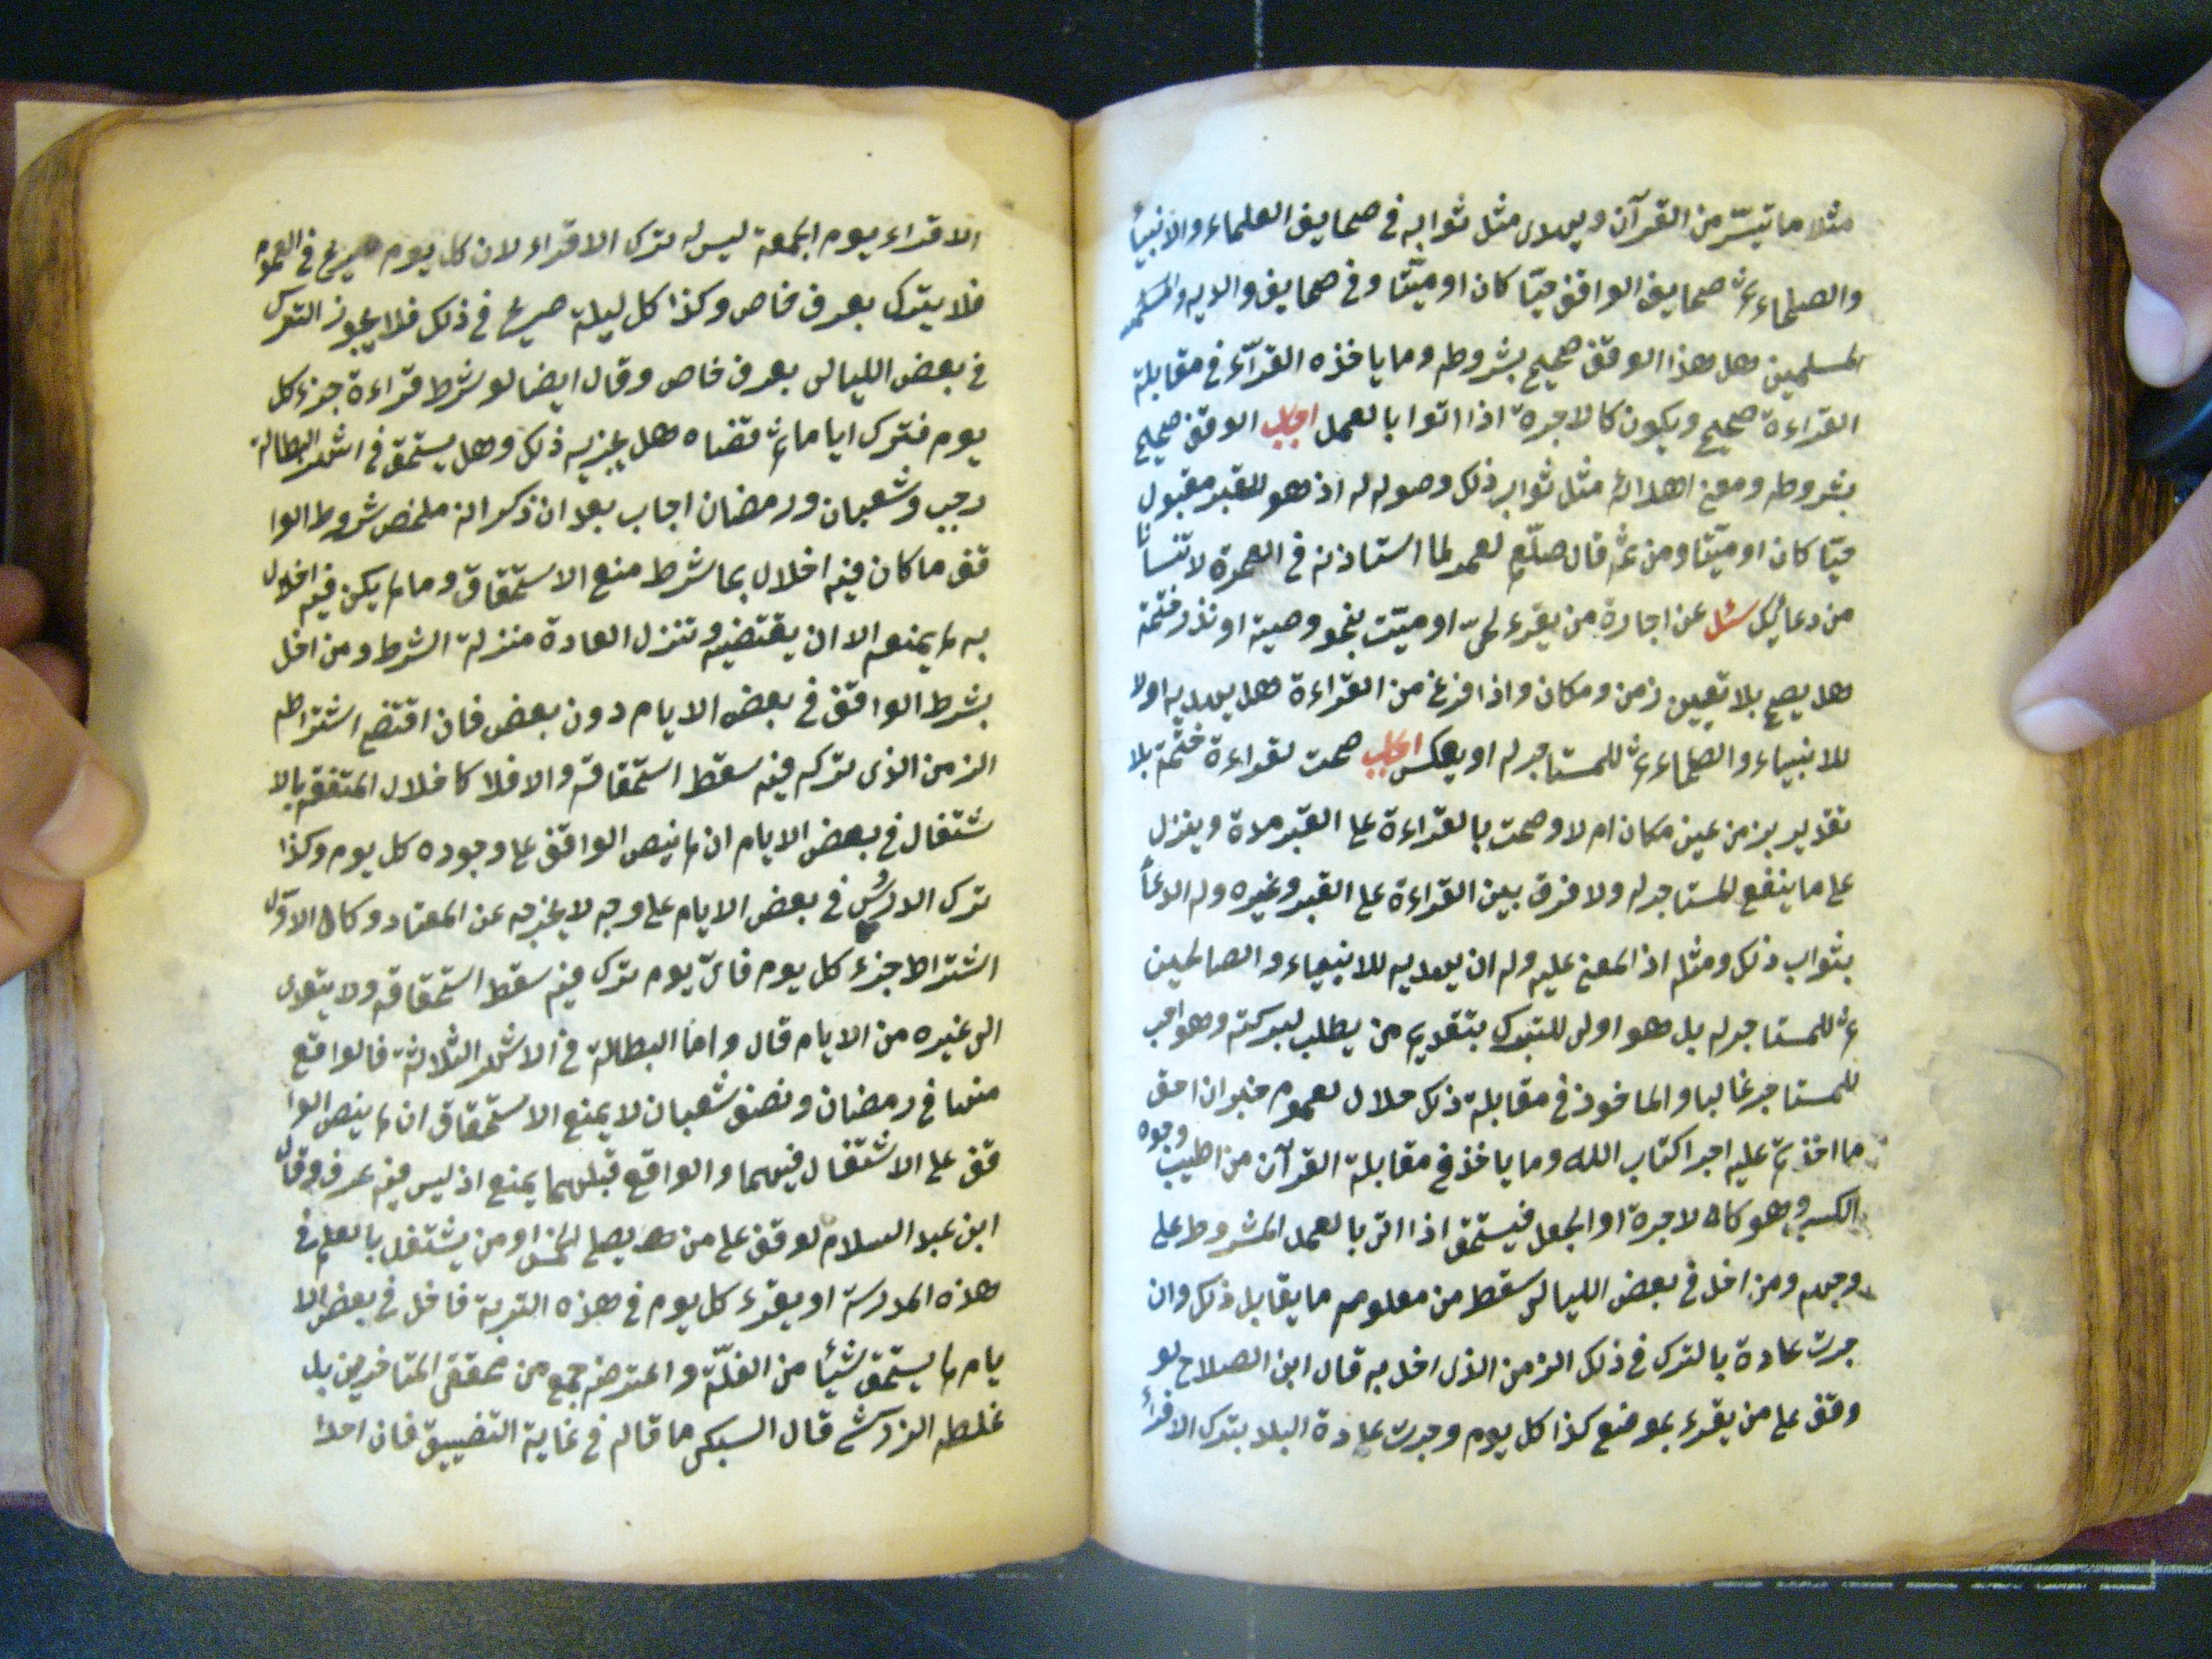 مثلا ما تيسّر من القرآن ويهدى مثل ثوابه في صحايف العلماء والانبيأ
والصلحاء ثم صحايف الواقف حيّا كان او ميّتا وفي صحايف والديه والمسلمين
المسلمين هل هذا الوقف صحيح بشروطه وما ياخذه القرّآء في مقابلة
القراءة صحيح ويكون كالاجرة اذا اتوا بالعمل اجاب الوقف صحيح
بشروطه ومعنى اهدائه مثل ثواب ذلك وصوله له اذ هو للغير مقبول
حيّا كان او ميّتا ومن ثمّ قال صلّعم لعمر لما استاذنه في العمرة لا تنسانا
من دعائيك سئل عن اجارة من يقرء لحيّ او ميّت بنحو وصية او نذر ختمة
هل يصح بلا تعيين زمن ومكان واذا فرغ من القراءة هل يهديه اولا
للانبياء والصلحاء ثم للمستاجر له او يعكس اجاب صحت لقراءة ختمة بلا
تقدير بزمن عين مكان ام لا وصحت بالقراءة على القبر مدة وينزل
على ما ينفع المستاجر له ولا فرق بين القراءة على القبر وغيره وله الدعأ
بثواب ذلك ومثله اذ المعنى عليه وله ان يهديه للانبياء والصالحين
ثم للمستاجر له بل هو اولى للتبرك بتقديم من يطلب لبركته وهو احب
للمستاجر غالبا والماخوذ في مقابلة ذلك حلال لعموم خبر ان احق
ما اخذتم عليه اجرا كتاب الله وما ياخذ في مقابلة القرآن من اطيب وجوه
الكسب وهو كالاجرة او الجعل فيستحق اذا اتى بالعمل المشروط على
وجهه ومن اخل في بعض الليالي سقط من معلومه ما يقابل ذلك وان
جرت عادة بالترك في ذلك الزمن الذى اخل به قال ابن الصلاح لو
وقف على من يقرء بموضع كذا كل يوم وجرت عادة البلد بترك الاقرأ
الاقراء يوم الجمعة ليس له ترك الاقراء لان كل يوم صريح في العموم
فلا يترك بعرف خاص وكذا كل ليلة صريح في ذلك فلا يجوز الترك
في بعض الليالى بعرف خاص وقال ايضا لو شرط قراءة جزء كل
يوم فترك اياما ثم قضاه هل يجزيه ذلك وهل يستحق في اشهر البطالة
رجب وشعبان ورمضان اجاب بعد ان ذكر انه ملخص شروط الوا
قف ما كان فيه اخلال بما شرط منع الاستحقاق وما لم يكن فيه اخلال
به لم يمنعه الا ان يقتضيه وتنزل العادة منزلة الشرط ومن اخل
بشرط الواقف في بعض الايام دون بعض فان اقتضى اشتراطه
الزمن الذى تركه فيه سقط استحقاقه والا فلا كاخلال المتفقه بالا
شتغال في بعض الايام ان لم ينص الواقف على وجوده كل يوم وكذا
ترك الدرس في بعض الايام على وجه لا يخرجه عن المعتاد وكالاوّل
اشتراط جزء كل يوم فاىّ يوم ترك فيه سقط استحقاقه ولا يتعدى
الى غيره من الايام قال وامّا البطالة في الاشهر الثلاثة فالواقع
منها في رمضان ونصف شعبان لا يمنع الاستحقاق ان لم ينص الوا
قف على الاشتغال فيهما والواقع قبلهما يمنع اذ ليس فيه عرف وقال
ابن عبد السلام لو وقف على من يصلى الخمس او من يشتغل بالعلم في
هذه المدرسة او يقرء كل يوم في هذه التربة فاخل في بعض الا
يام لم يستحق شيئا من الغلّة واعترضه جمع من محققى المتاخرين بل
غلطه الزركشى قال السبكى ما قاله في غاية التضييق فان احدا